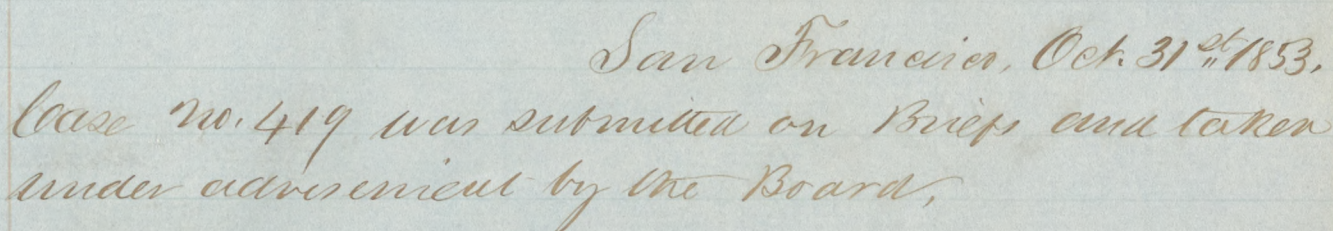 San Francisco, Oct. 31st 1853.
Case No. 419 was submitted on Briefs and taken
under advisement by the Board.